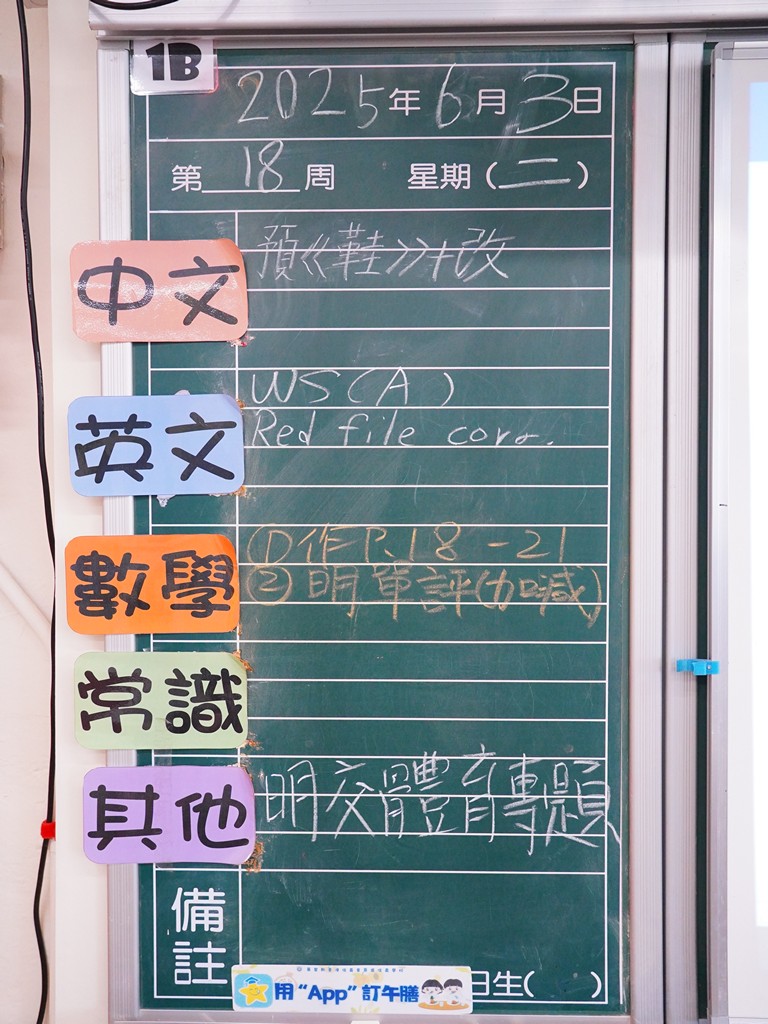 1B
2025年6月3日
第18周 星期(二)
中文
預《鞋》+改
英文
WS(A)
Red file corr.
數學
①作P.18-21
②明單評(加減)
常識
其他
明交體育專題
備註
用“App”訂午膳
日生( )